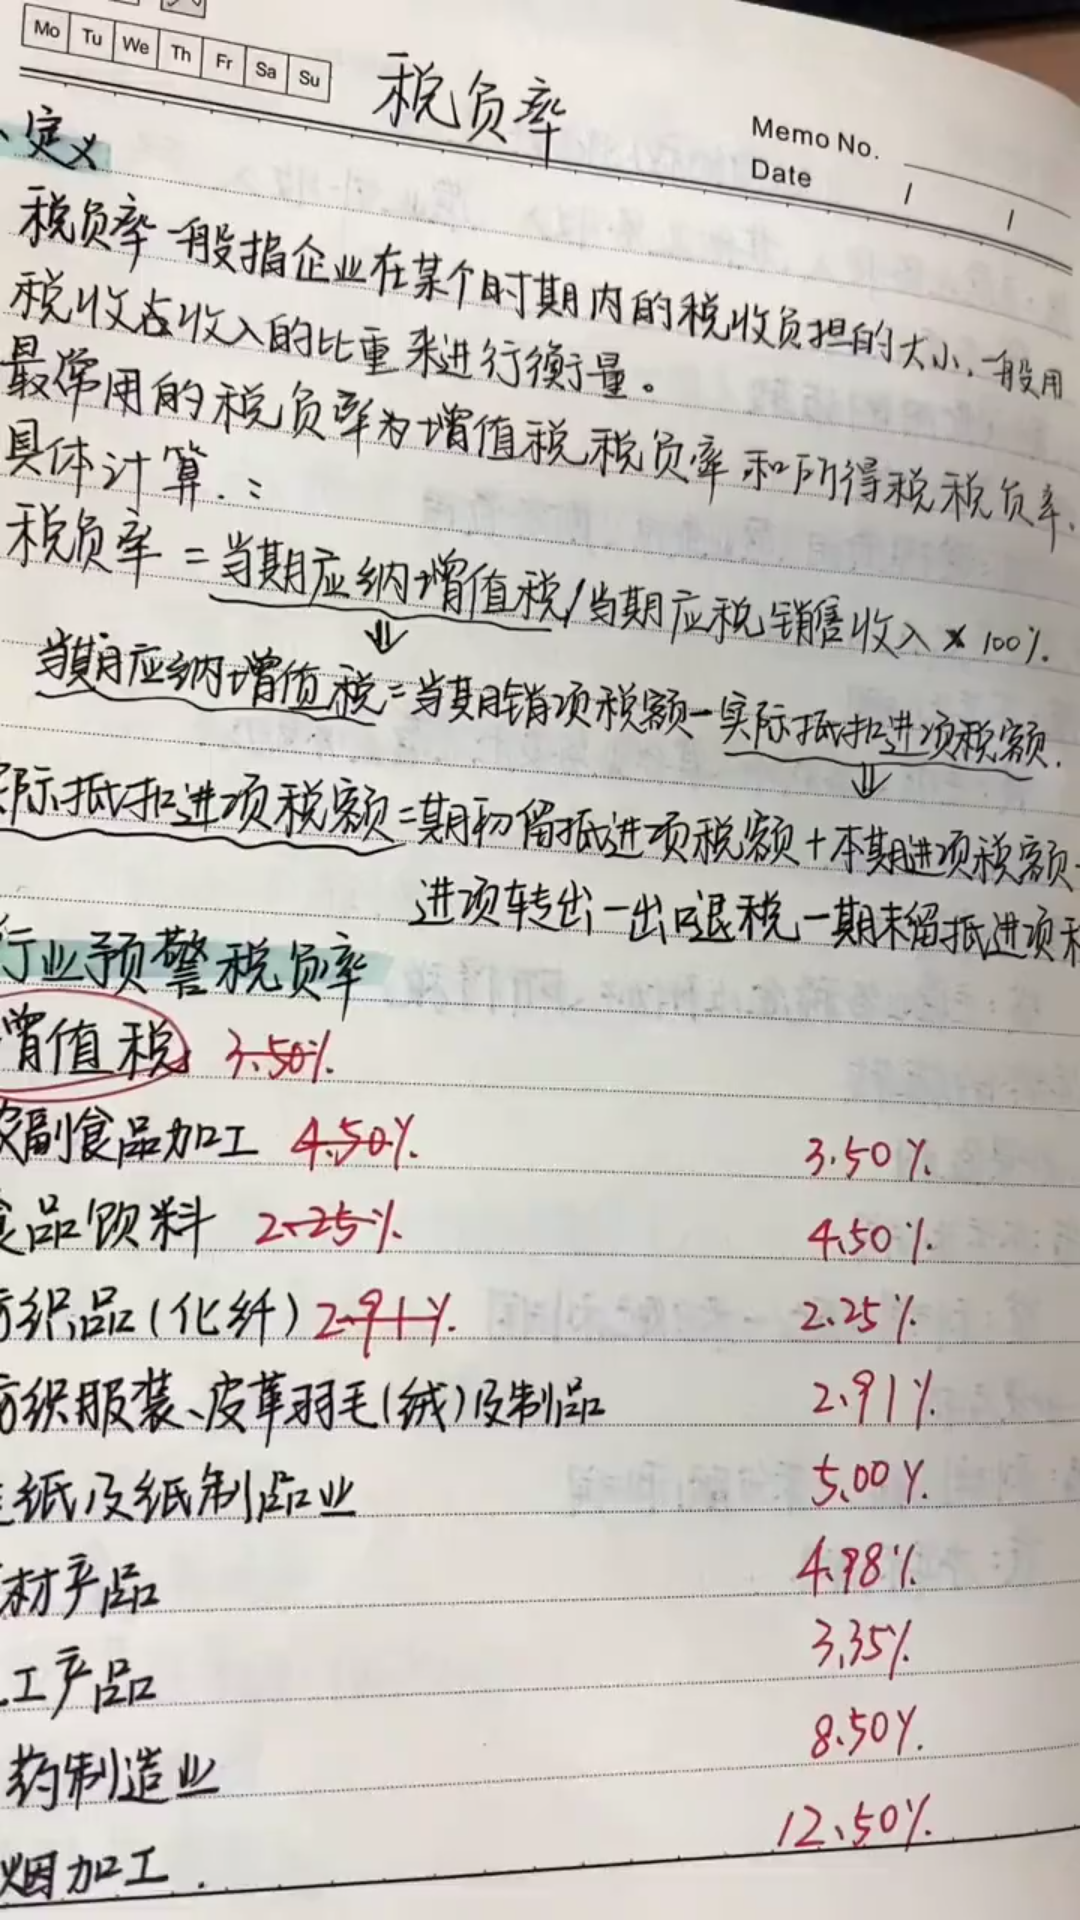 Mo Tu We Th Fr Sa Su
税负率
Memo No.
Date / /
、定义
税负率一般指企业在某个时期内的税收负担的大小，一般用
税收占收入的比重来进行衡量。
最常用的税负率为增值税税负率和所得税税负率.
具体计算.：
税负率 = 当期应纳增值税/当期应税销售收入 × 100%.
当期应纳增值税=当期销项税额-实际抵扣进项税额.
际抵扣进项税额=期初留抵进项税额+本期进项税额-
进项转出-出口退税-期末留抵进项
行业预警税负率
增值税 3.50%
农副食品加工 4.50% 3.50%
食品饮料 2.25% 4.50%
纺织品(化纤) 2.91% 2.25%
纺织服装、皮革羽毛(绒)及制品 2.91%
造纸及纸制品业 5.00%
材产品 4.98%
工产品 3.35%
药制造业 8.50%
烟加工. 12.50%